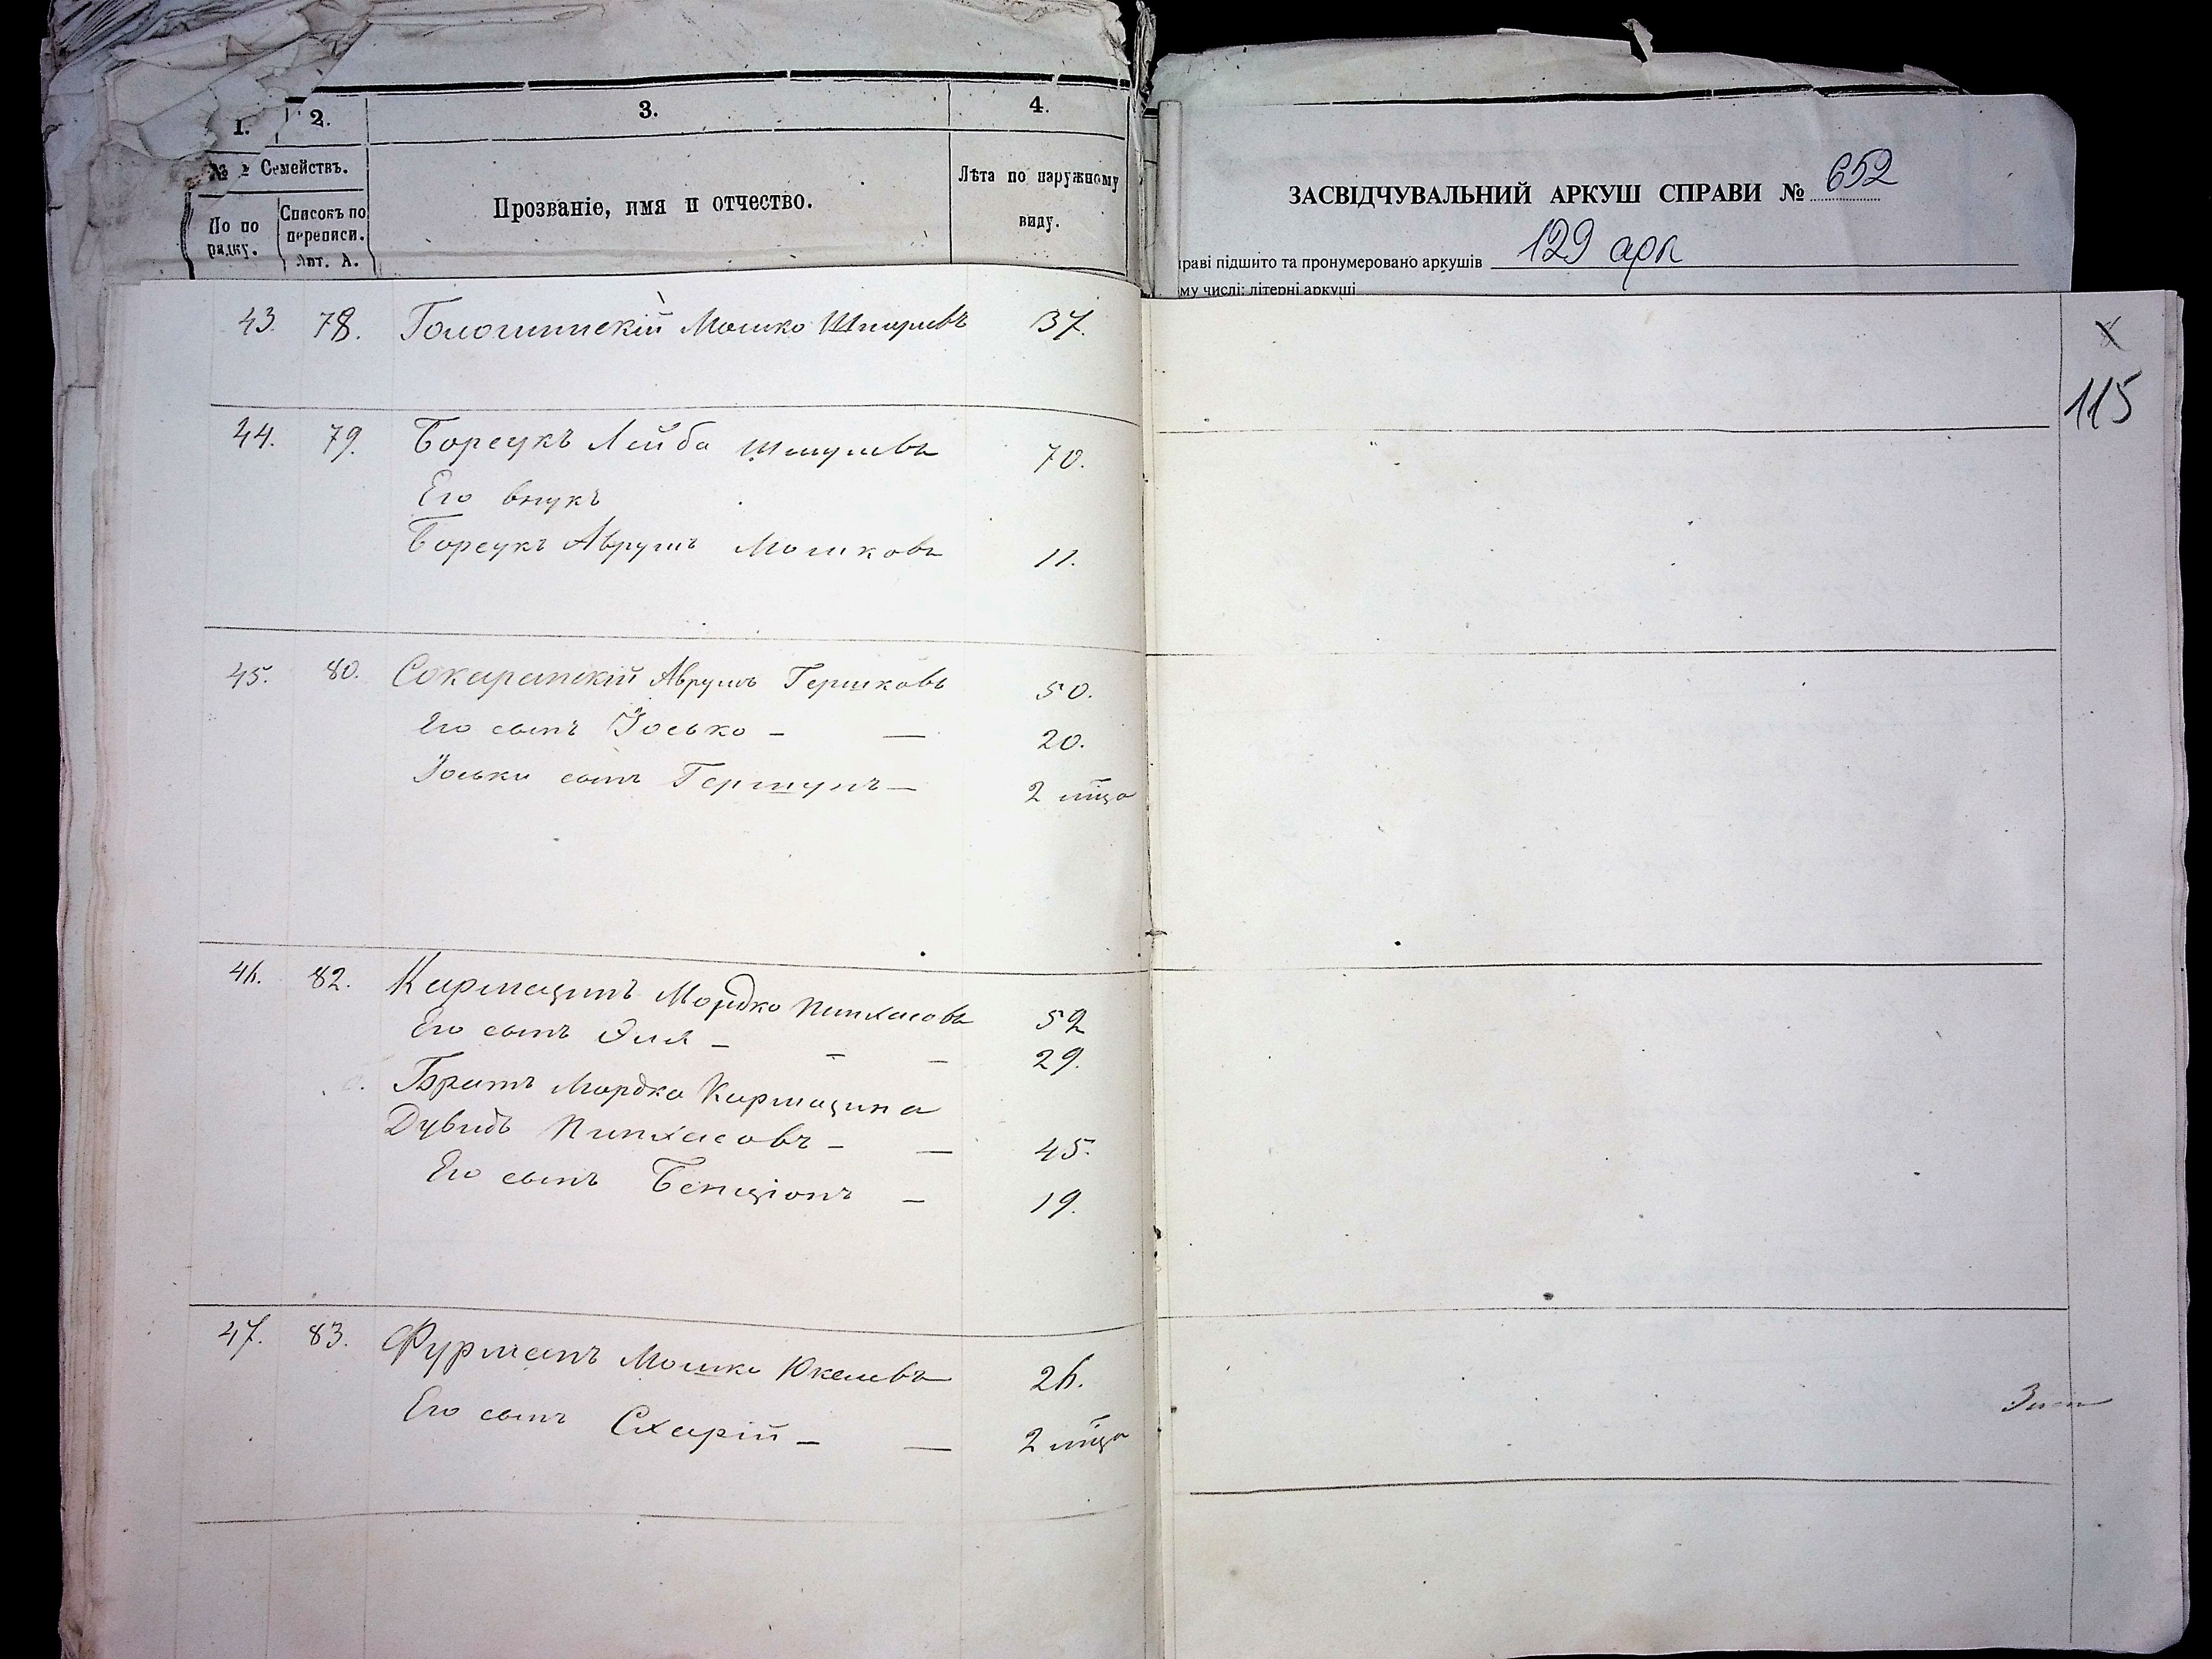 1.
2.
3.
4.
№ Семействъ.
По по рядку.
Списокъ по переписи. Лит. А.
Прозваніе, имя и отчество.
Лѣта по наружному виду.
ЗАСВІДЧУВАЛЬНИЙ АРКУШ СПРАВИ № 652
раві підшито та пронумеровано аркушів 129 арк
му числі: літерні аркуші
115
43. 78. Мошко 37.
44. 79. Борсукъ Лейба Шмулевъ 70.
Его внукъ
Борсукъ Аврумъ Мошковъ 11.
45. 80. Аврумъ Гершковъ 50.
Его сынъ Іосько — — 20.
Іоськи сынъ Гершунъ — 2 мѣся
46. 82. Кармацинъ Мордко Пинхасовъ 52
Его сынъ Эля — — — 29.
Братъ Мордка Кармацина
Дувидъ Пинхасовъ — — 45.
Его сынъ Бенціонъ — 19.
47. 83. Фурманъ Мошко Юкелевъ 26.
Его сынъ Схарій — — 2 мѣся